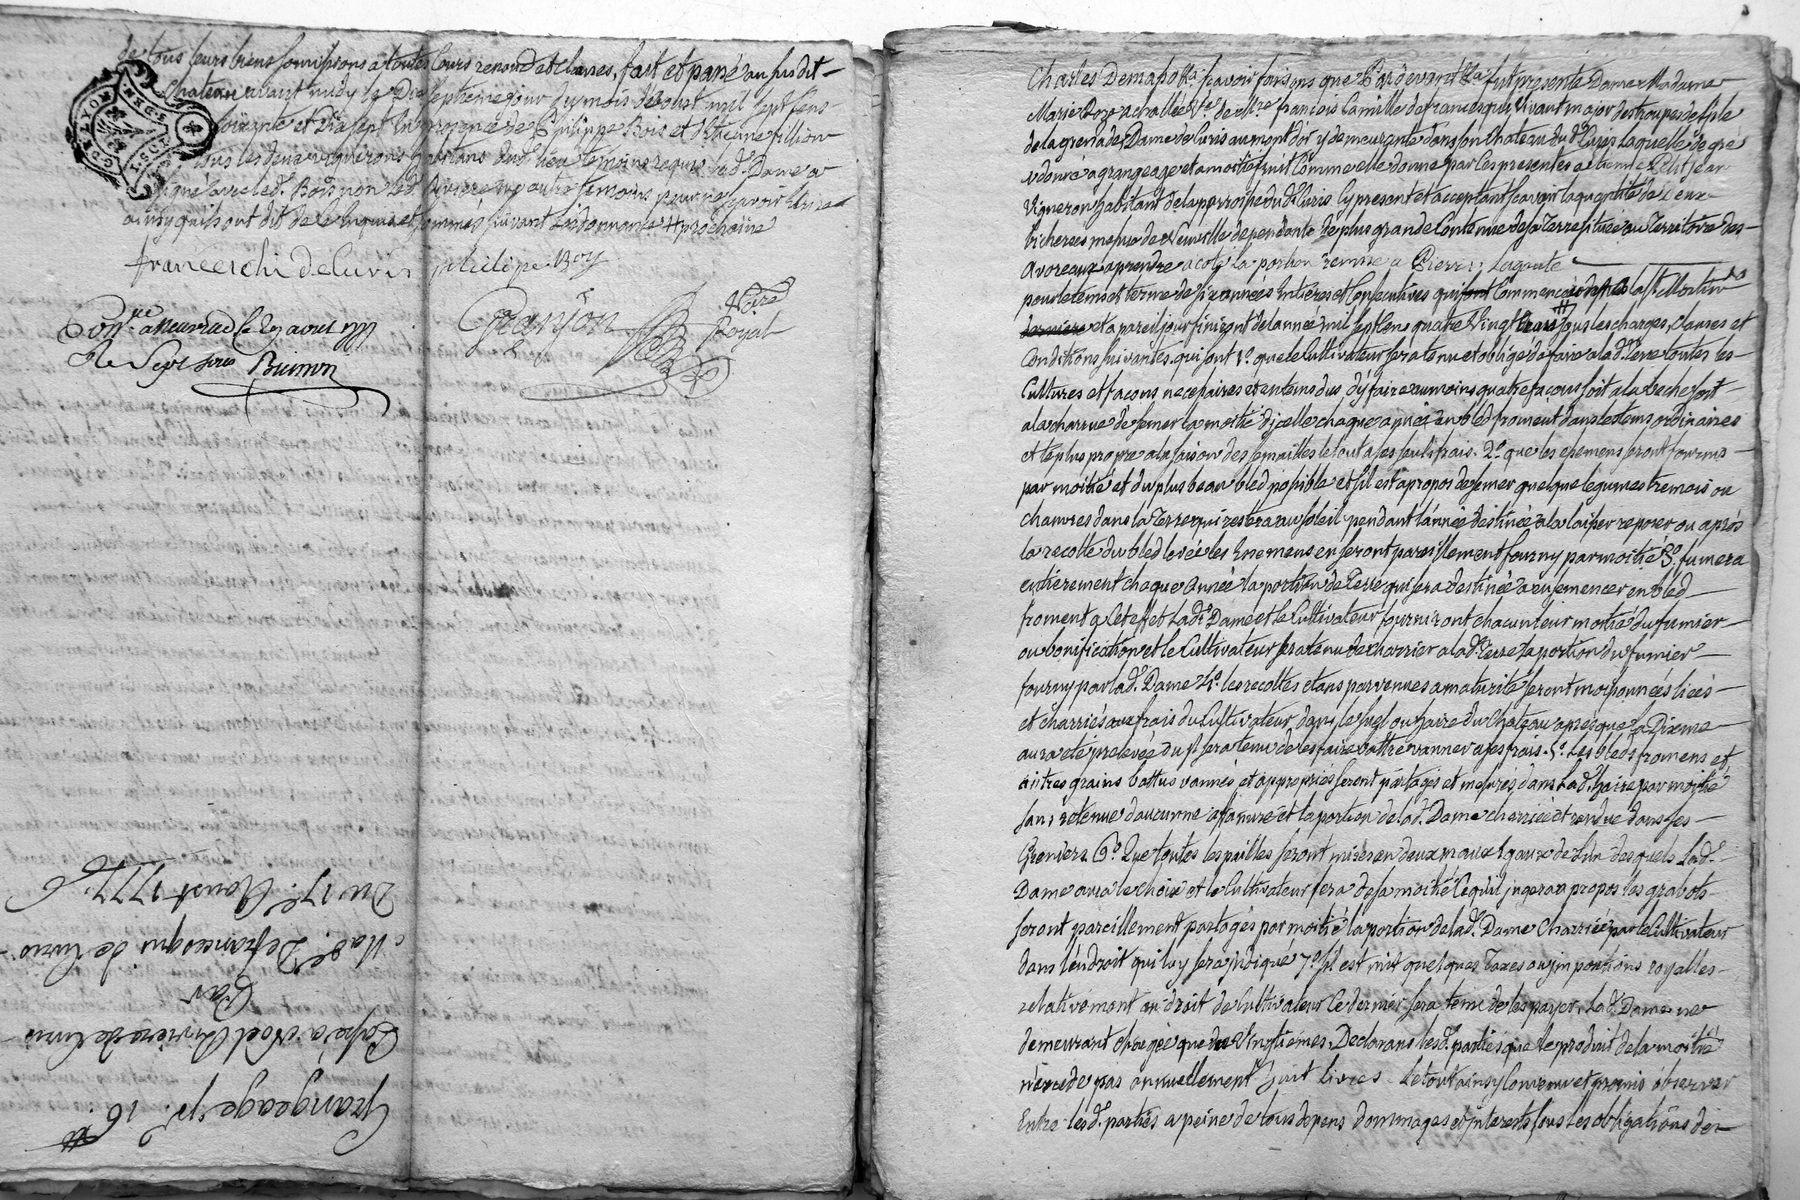 de tous leurs biens soumissions a toutes Cours renond et clauses, fait et passé au susdit
Chateau avant midy le Dix septieme jour du mois d'Aoust mil sept Cens
soixante et Dix sept En presence de Philippe Bois et d'Etienne fillion
tous les deux vignerons habitans dud. lieu temoins requis lad. Dame a
signé avec led. Bois non led. Riviere ny autre temoins pour ne scavoir Ecrire
ainsy quils ont dit de Ce Enquis et sommés suivant L'ordonnance
franceschi de Curis philipe Boy
Granjon Nore Royal
Conlle a Neuville le 27 aout 1777
R. Sept sous Brimon
GEN. LYON
Du 17e. Aoust 1777. 6
Mad. Defrancesqui de Curis
Par
Passé a Noel Riviere de Curis
Grangeage pr. 16.
Charles Demasso &a. scavoir faisons que Pardevant &a. fut presente Dame Madame
Marie Roze achallé Ve. de Mre. françois Camille de francesqui Vivant major des troupes de l'isle
de la grenade Dame de Curis au mont d'or y demeurante dans son Chateau dud. Curis laquelle de gré
a donné a grangeage et a moitié fruit Comme elle donne par Ces presentes a Etienne Petit Jean
Vigneron habitant de la parroisse dud. Curis Cy present et acceptant scavoir la quantité de Deux
bicherees mesure de Neuville dependante de plus grande Contenue de la Terre situee au Territoire des
Avoreaux a prendre a coté la portion remise a Pierre Lagoute
pour le tems et terme de six années Entieres et Consecutives qui sont Commencé a la St. Martin
derniere et a pareil jour finiront de lannée mil sept Cens quatre Vingt trois sous les charges, Clauses et
Conditions suivantes, qui sont 1o. que le Cultivateur sera tenu et obligé de faire a lad. Terre toutes les
Cultures et façons necessaires et en tems dus d'y faire au moins quatre façons soit a la beche soit
a la charrue de semer la moitié d'jcelle chaque année en bled froment dans les tems ordinaires
et le plus propre a la saison des semailles le tout a ses seuls frais. 2o. que les esemens seront fournis
par moitié et du plus beau bled possible et s'il est a propos de semer quelque legumes tremois ou
chanvres dans la Terre qui restera au soleil pendant lannée destinée a la laisser reposer ou après
la recolte du bled levée les Enemens en seront pareillement fourny par moitié 3o. fumera
entierement chaque année la portion de Terre qui sera destinée a ensemencer en bled
froment a l'effet Lad. Dame et le Cultivateur fourniront chacun leur moitié du fumier
ou bonification et le Cultivateur sera tenu de charrier a lad. Terre la portion du fumier
fourny par lad. Dame 4o. les recoltes etans parvenues a maturité seront moissonnées liées
et charriés aux frais du Cultivateur dans le suel ou haire du Chateau apres que la Dixme
aura eté prelevée Du sl sera tenu de les faire battre vanner a ses frais. 5o. Les bleds fromens et
autres grains battus vannés et appropriés seront partagés et mesurés dans lad. haire par moitié
sans retenue d'aucunne afanure et la portion de lad. Dame charriée et rendue dans ses
Greniers. 6o. Que toutes les pailles seront mises en deux maux Egaux de L'un desquels Lad.
Dame aura le choix et le Cultivateur fera de sa moitié Ce qu'il jugera a propos les grabots
seront pareillement partagés par moitié la portion de lad. Dame Charriée par le Cultivateur
dans l'endroit qui luy sera jndiqué 7o. s'il est mit quelques Taxes ou jmpositions royalles
relativement au droit de Cultivateur Ce dernier sera tenu de les payer, Lad. Dame ne
demeurant chargée que du Vingtiémes. Declarans lesd. parties que le produit de la moitié
n'excede pas annuellement huit livres Le tout ainsy Convenu et promis observer
Entre lesd. parties a peine de tous depens dommages et interets sous les obligations de